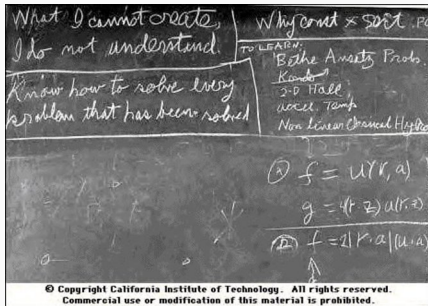 What I cannot create,
I do not understand.
Know how to solve every
problem that has been solved
Why const × sort . PO
TO LEARN:
Bethe Ansatz Prob.
Kondo
2-D Hall
accel. Temp
Non Linear Classical Hydro
f = u(r, a)
g = 4(r·z) u(r, z)
f = 2|r·a|(u·a)
© Copyright California Institute of Technology. All rights reserved.
Commercial use or modification of this material is prohibited.